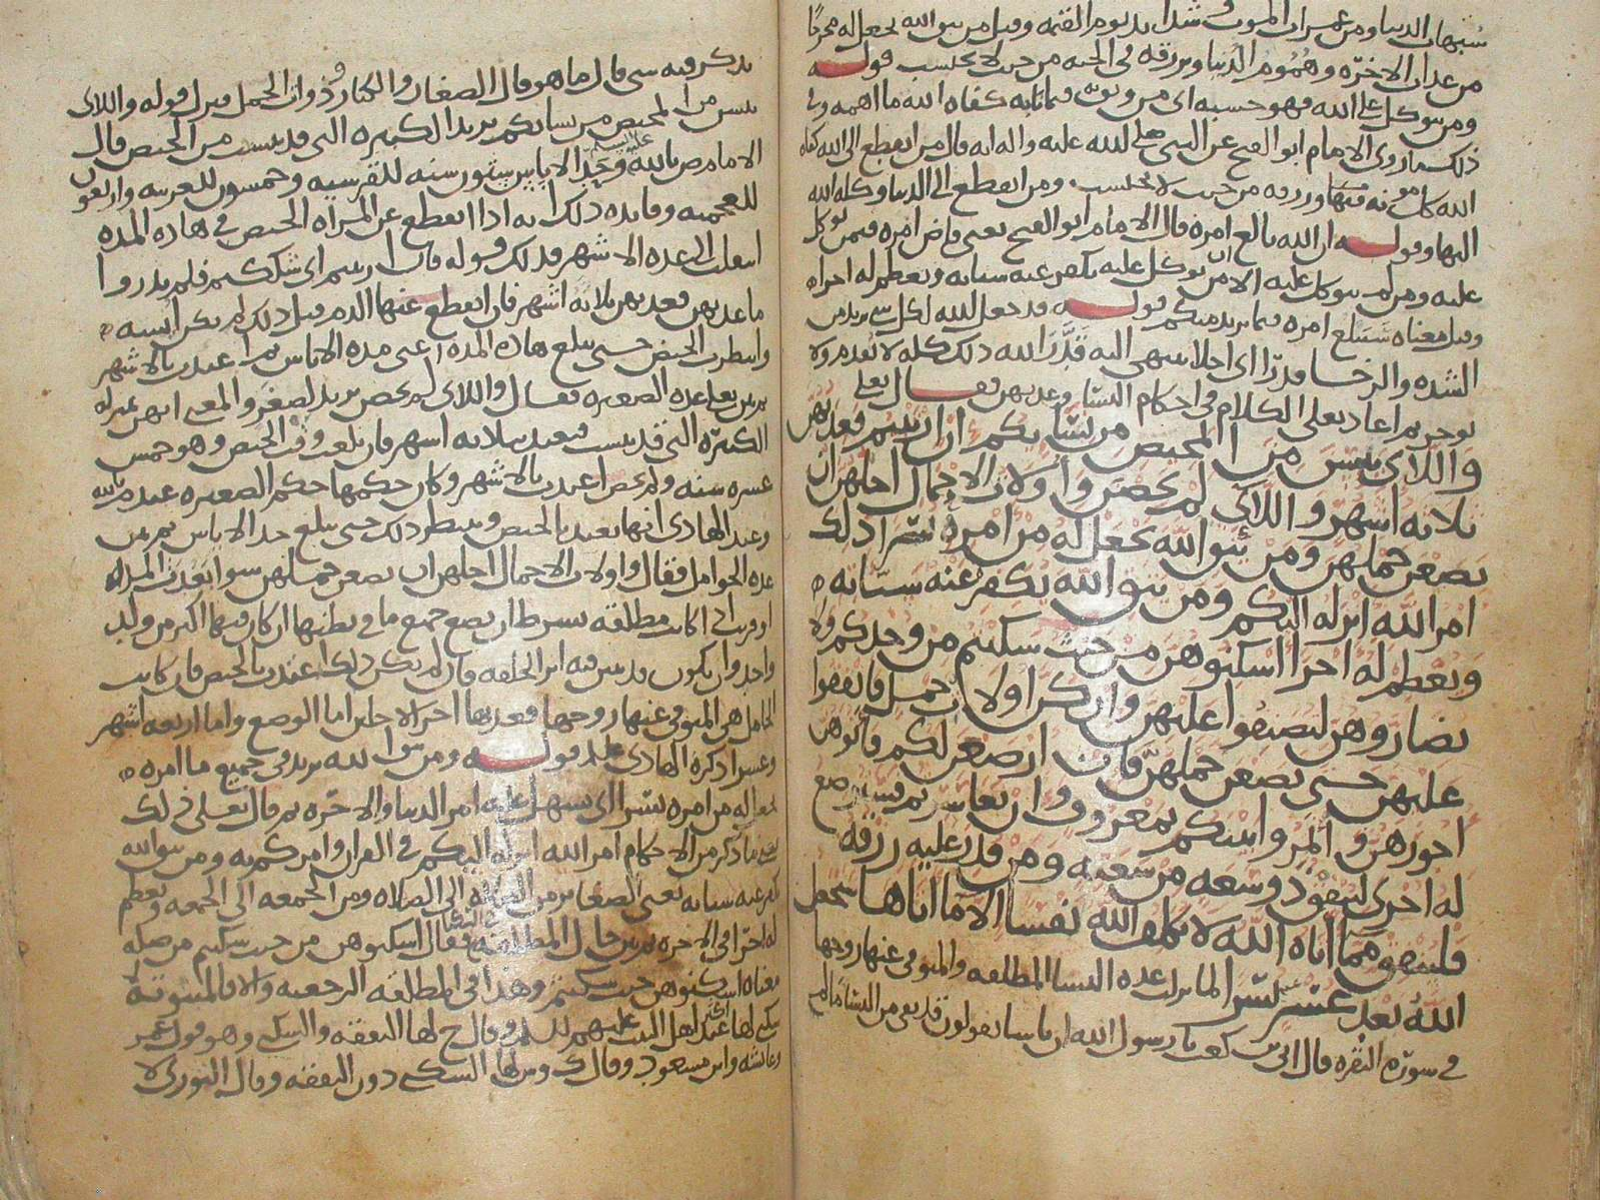 شبهات الدنيا ومن غمرات الموت وشدايد يوم القيمه وقيل من يتق الله يجعل له مخرجا
من عذاب الاخره وهموم الدنيا ويرزقه في الجنه من حيث لا يحتسب قوله
ومن يتوكل على الله فهو حسبه اي من وثق به فيما نابه كفاه الله ما اهمه وفي
ذلك ما روى الامام ابو الفتح عن النبي صلى الله عليه واله انه قال من انقطع الى الله كفاه
الله كل مؤنه فيها ورزقه من حيث لا يحتسب ومن انقطع الى الدنيا وكله الله
اليها وقوله ان الله بالغ امره قال الامام ابو الفتح يعني قاض امره فيمن توكل
عليه ومن لم يتوكل عليه الا ان من توكل عليه يكفر عنه سياته ويعظم له اجرا
وقيل معناه سيبلغ امره فيما يريد منكم قوله قد جعل الله لكل شي يريد من
الشده والرخا قدرا اي اجلا ينتهي اليه قدر الله ذلك كله لا يقدم ولا
يوخر ثم اعاد تعالى الكلام في احكام النسا وعدتهن فقال تعالى
واللاى يئسن من المحيض من نسايكم ان ارتبتم فعدتهن
ثلاثه اشهر واللاى لم يحضن واولات الاحمال اجلهن ان
يضعن حملهن ومن يتق الله يجعل له من امره يسرا ذلك
امر الله انزله اليكم ومن يتق الله يكفر عنه سياته
ويعظم له اجرا اسكنوهن من حيث سكنتم من وجدكم ولا
تضاروهن لتضيقوا عليهن وان كن اولات حمل فانفقوا
عليهن حتى يضعن حملهن فان ارضعن لكم فاتوهن
اجورهن واتمروا بينكم بمعروف وان تعاسرتم فسترضع
له اخرى لينفق ذو سعه من سعته ومن قدر عليه رزقه
فلينفق مما اتاه الله لا يكلف الله نفسا الا ما اتاها سيجعل
الله بعد عسر يسرا لما نزلت عده النسا المطلقه والمتوفى عنها زوجها
في سورة البقره قال ابي بن كعب يا رسول الله ان ناسا يقولون قد بقى من النسا ما لم
يذكر فيه شي قال ما هو قال الصغار والكبار وذوات الحمل فنزل قوله واللاى
يئسن من المحيض من نسايكم يريد الكبيره التي قد يئست من الحيض قال
الامام ص بالله عليه السلم وحد الاياس ستون سنه للقرشيه وخمسون للعربيه واربعون
للعجميه وفايده ذلك انه اذا انقطع عن المراه الحيض في هذه المده
انتقلت الى عده الاشهر فذلك قوله فان ارتبتم اي شككتم فلم تدروا
ما عدتهن فعدتهن ثلاثه اشهر فان انقطع عنها الدم قبل ذلك لم تكن ايسه
وانتظرت الحيض حتى تبلغ هذه المده اعني مده الاياس ثم اعتدت بالاشهر
ثم بين تعالى عده الصغيره فقال واللاى لم يحضن يريد لصغر والمعنى انهن بمنزله
الكبيره التي قد يئست فتعتد بثلاثه اشهر فان بلغت وقت الحيض وهو خمس
عشره سنه ولم تحض اعتدت بالاشهر وكان حكمها حكم الصغيره عند م بالله
وعند الهادي انها تعتد بالحيض وتنتظر ذلك حتى تبلغ حد الاياس ثم بين
عده الحوامل فقال واولات الاحمال اجلهن ان يضعن حملهن سوا بعدت المده
او قربت اذا كانت مطلقه بشرط ان تضع جميع ما في بطنها ان كان فيها اكثر من ولد
واحد وان يكون قد تبين فيه اثر الخلقه فان لم يكن ذلك اعتدت بالحيض فان كانت
الحامل هي المتوفى عنها زوجها فعدتها اخر الاجلين اما الوضع واما اربعه اشهر
وعشرا ذكره الهادي عليلم قوله ومن يتق الله يريد في جميع ما امره
يجعل له من امره يسرا اي يسهل عليه امر الدنيا والاخره ثم قال تعالى ذلك
يعني ما ذكر من الاحكام امر الله انزله اليكم في القران وامركم به ومن يتق الله
يكفر عنه سياته يعني الصغاير من الصلاه الى الصلاه ومن الجمعه الى الجمعه ويعظم
له اجرا في الاخره ثم بين حال المطلقه في السكنى فقال اسكنوهن من حيث سكنتم من صله
معناه اسكنوهن حيث سكنتم وهذا في المطلقه الرجعيه والا فالمبتوته لا
سكنى لها عند اهل البيت عليهم السلم وقال ح لها النفقه والسكنى وهو قول عمر
وعائشه وابن مسعود وقال ك وش لها السكنى دون النفقه وقال الثوري لا